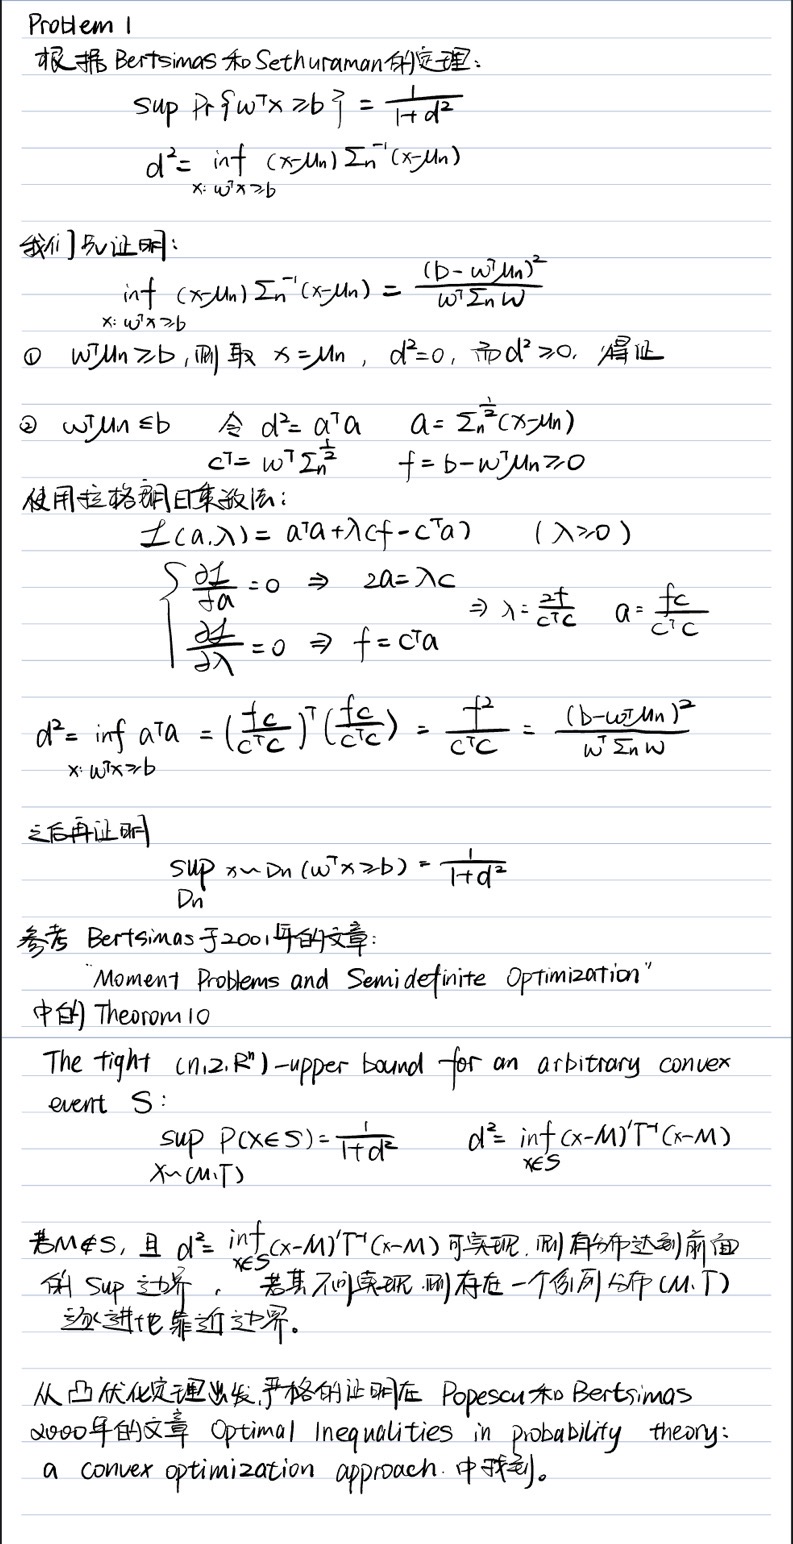 Problem 1
根据 Bertsimas 和 Sethuraman 的定理:
sup Pr{wᵀx ≥ b} = 1/(1+d²)
d² = inf (x-μn) Σn⁻¹ (x-μn)
x: wᵀx ≥ b
我们先证明:
inf (x-μn) Σn⁻¹ (x-μn) = (b - wᵀμn)² / wᵀΣn w
x: wᵀx ≥ b
① wᵀμn ≥ b, 则取 x = μn, d² = 0, 而 d² ≥ 0. 得证
② wᵀμn ≤ b 令 d² = aᵀa a = Σn^(-1/2) (x-μn)
cᵀ = wᵀ Σn^(1/2) f = b - wᵀμn ≥ 0
使用拉格朗日乘数法:
L(a, λ) = aᵀa + λ(f - cᵀa) (λ ≥ 0)
{ ∂L/∂a = 0 ⇒ 2a = λc
⇒ λ = 2f/cᵀc a = fc/cᵀc
∂L/∂λ = 0 ⇒ f = cᵀa
d² = inf aᵀa = (fc/cᵀc)ᵀ (fc/cᵀc) = f²/cᵀc = (b-wᵀμn)² / wᵀΣn w
x: wᵀx ≥ b
之后再证明
sup x∼Dn (wᵀx ≥ b) = 1/(1+d²)
Dn
参考 Bertsimas 于2001年的文章:
"Moment Problems and Semidefinite Optimization"
中的 Theorom 10
The tight (n,2,Rⁿ)-upper bound for an arbitrary convex
event S:
sup P(X∈S) = 1/(1+d²) d² = inf (x-M)'Γ⁻¹(x-M)
X∼(M,Γ) x∈S
若M∉S, 且 d² = inf (x-M)'Γ⁻¹(x-M) 可实现, 则有分布达到前面
x∈S
的 Sup 边界, 若其不可实现, 则存在一个系列分布 (M,Γ)
逐渐进地靠近边界。
从凸优化定理出发, 严格的证明在 Popescu 和 Bertsimas
2000年的文章 Optimal Inequalities in probability theory:
a convex optimization approach. 中找到。